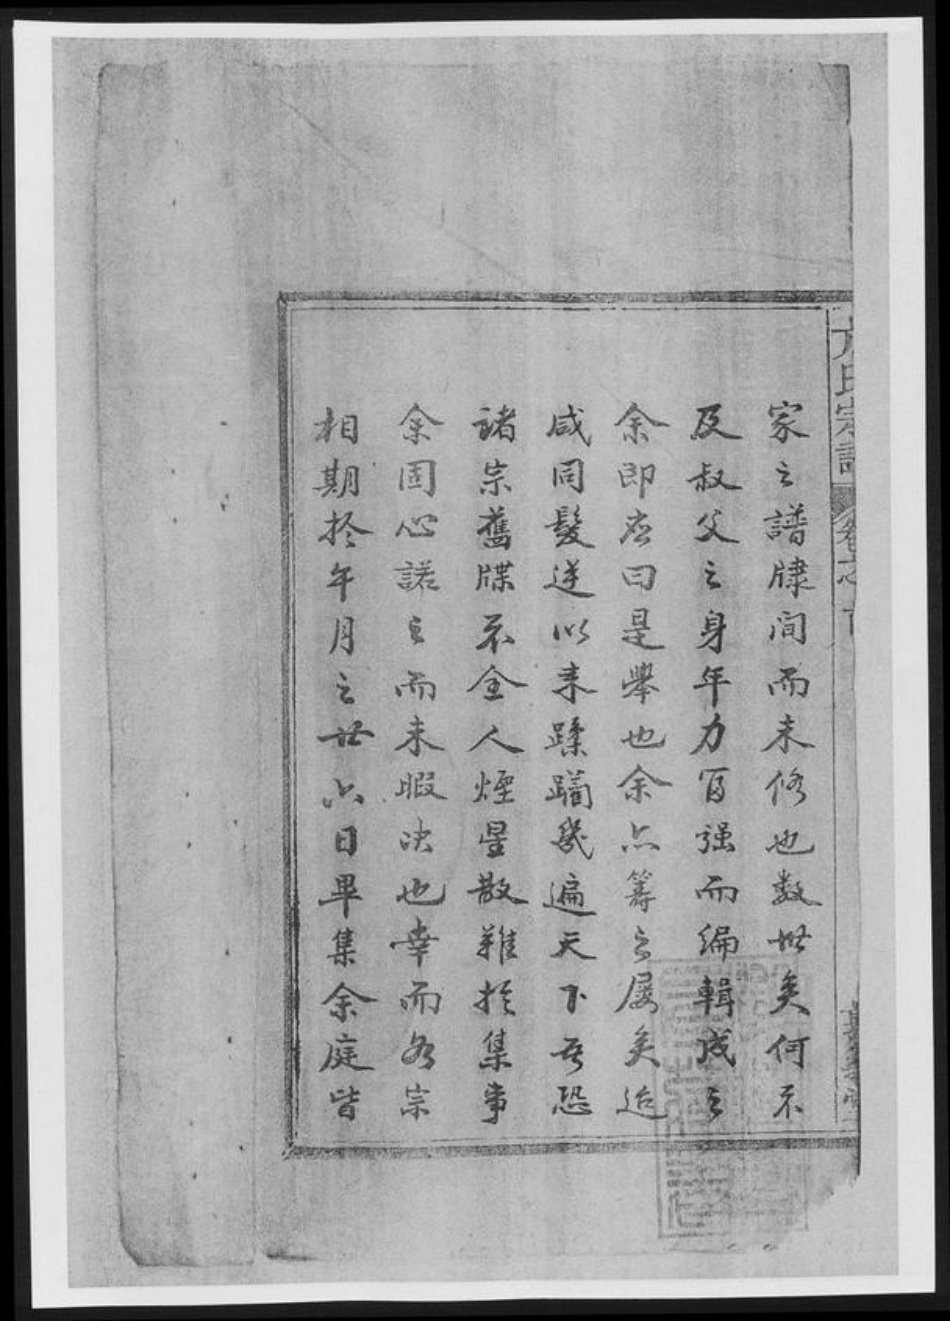 方氏宗譜
卷之首
家之譜牒間而未修也数世矣何不
及叔父之身年力富强而编輯成之
余即應曰是舉也余亦籌之屢矣迨
咸同髮逆以来蹂躪幾遍天下吾恐
諸宗舊牒不全人煙星散難於集事
余固心諾之而未暇决也幸而各宗
相期於年月之廿六日畢集余庭皆